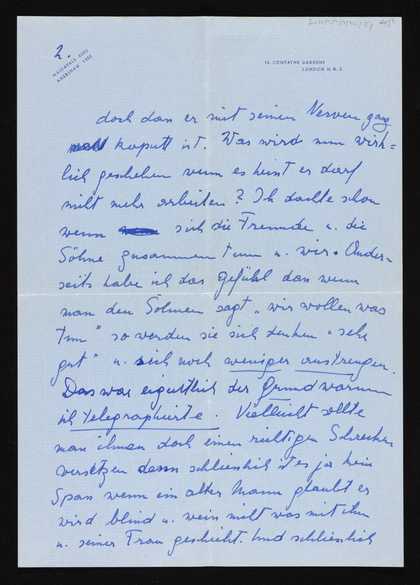 2.
MAIDA VALE
14, CONSTAYNE GARDENS
LONDON N.W.6
doch dass er mit seinen Nerven ganz
kaputt ist. Was wird nun wirk-
lich geschehen wenn es heisst er darf
nicht mehr arbeiten? Ich dachte schon
wenn sich die Freunde u. die
Söhne zusammen tun u. wir. Ander-
seits habe ich das Gefühl dass wenn
man den Söhnen sagt „wir wollen was
tun" so werden sie sich denken „sehr
gut" u. sich noch weniger anstrengen.
Das war eigentlich der Grund warum
ich telegraphierte. Vielleicht sollte
man ihnen doch einen richtigen Schrecken
versetzen denn schliesslich ist es ja kein
Spass wenn ein alter Mann glaubt er
wird blind u. weiss nicht was mit ihm
u. seiner Frau geschieht. Und schliesslich